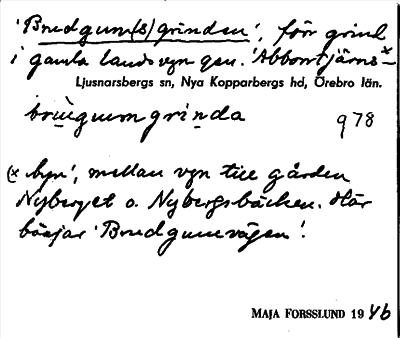 'Brudgum(s)grinden', förr grind
i gamla landsvgn gm. 'Abborrtjärns-x
Ljusnarsbergs sn, Nya Kopparbergs hd, Örebro län.
brùgumgrinda 978
(x byn', mellan vgn till gården
Nyberget o. Nybergsbäcken. Här
börjar 'Brudgumvägen'.
MAJA FORSSLUND 1946